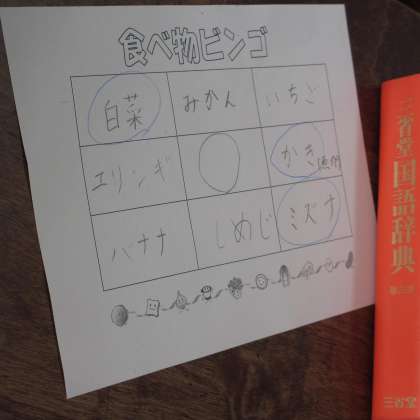 食べ物ビンゴ
白菜 みかん いちご
エリンギ かき
バナナ しめじ ミズナ
三省堂
国語辞典
三省堂